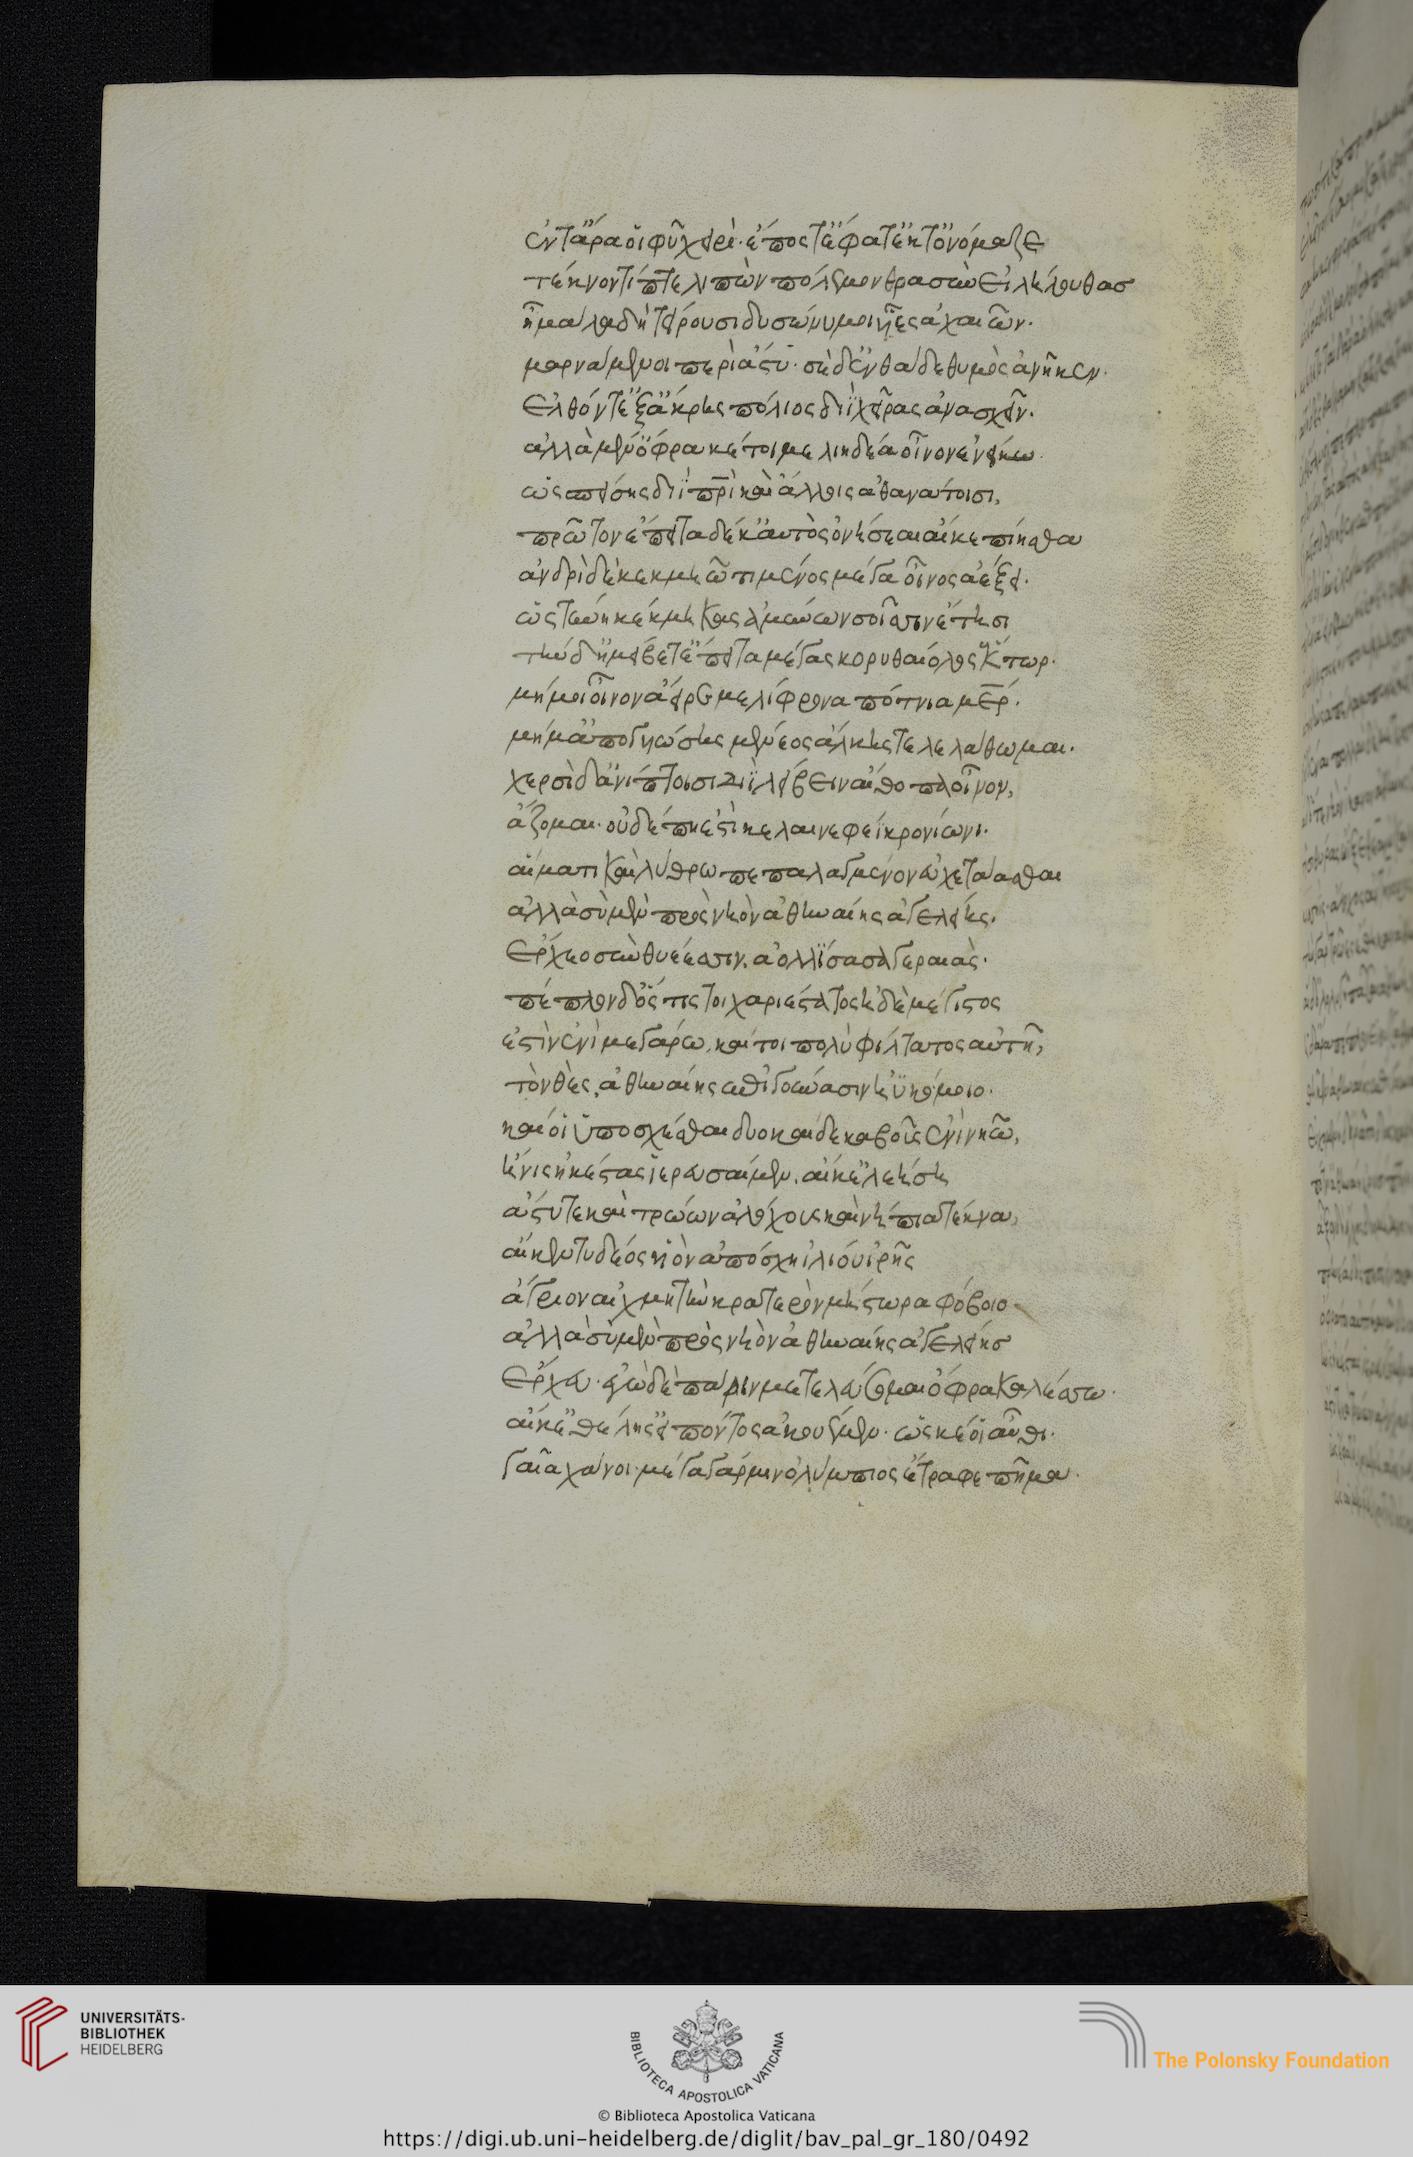 ἔντἄρα οἱ φῦ χειρί· ἔπος τ' ἔφατ' ἔκ τ' ὀνόμαζε
τέκνον τίπτε λιπὼν πόλεμον θρασὺν εἰλήλουθας
ἦ μάλα δὴ τείρουσι δυσώνυμοι υἷες ἀχαιῶν.
μαρνάμενοι περὶ ἄστυ· σὲ δ' ἐνθάδε θυμὸς ἀνῆκεν.
ἐλθόντ' ἐξ ἄκρης πόλιος διῒ χεῖρας ἀνασχεῖν.
ἀλλὰ μέν' ὄφρα κέ τοι μελιηδέα οἶνον ἐνείκω.
ὡς σπείσῃς διῒ πατρὶ καὶ ἄλλοις ἀθανάτοισι,
πρῶτον ἔπειτα δέ κ' αὐτὸς ὀνήσεαι αἴ κε πίησθα
ἀνδρὶ δὲ κεκμηῶτι μένος μέγα οἶνος ἀέξει.
ὡς τύνη κέκμηκας ἀμύνων σοῖσιν ἔτῃσι
τὴν δ' ἠμείβετ' ἔπειτα μέγας κορυθαίολος ἕκτωρ.
μή μοι οἶνον ἄειρε μελίφρονα πότνια μῆτερ.
μή μ' ἀπογυιώσῃς μένεος ἀλκῆς τε λάθωμαι.
χερσὶ δ' ἀνίπτοισι διῒ λείβειν αἴθοπα οἶνον,
ἅζομαι· οὐδέ πῃ ἐστὶ κελαινεφέϊ κρονίωνι.
αἵματι καὶ λύθρῳ πεπαλαγμένον εὐχετάασθαι
ἀλλὰ σὺ μὲν πρὸς νηὸν ἀθηναίης ἀγελείης.
ἔρχεο σὺν θυέεσσιν, ἀολλίσασα γεραιάς.
πέπλον δ' ὅς τίς τοι χαριέστατος ἠδὲ μέγιστος
ἐστὶν ἐνὶ μεγάρῳ, καί τοι πολὺ φίλτατος αὐτῇ,
τὸν θὲς ἀθηναίης ἐπὶ γούνασιν ἠϋκόμοιο.
καί οἱ ὑποσχέσθαι δυοκαίδεκα βοῦς ἐνὶ νηῷ,
ἤνις ἠκέστας ἱερευσέμεν, αἴ κ' ἐλεήσῃ
ἄστυ τε καὶ τρώων ἀλόχους καὶ νήπια τέκνα,
αἴ κεν τυδέος υἱὸν ἀπόσχῃ ἰλίου ἱρῆς
ἄγριον αἰχμητὴν κρατερὸν μήστωρα φόβοιο
ἀλλὰ σὺ μὲν πρὸς νηὸν ἀθηναίης ἀγελείης
ἔρχευ· ἐγὼ δὲ πάριν μετελεύσομαι ὄφρα καλέσσω.
αἴ κ' ἐθέλῃς' εἰπόντος ἀκουέμεν. ὥς κέ οἱ αὖθι.
γαῖα χάνοι· μέγα γάρ μιν ὀλύμπιος ἔτραφε πῆμα.
UNIVERSITÄTS-
BIBLIOTHEK
HEIDELBERG
BIBLIOTECA APOSTOLICA VATICANA
The Polonsky Foundation
© Biblioteca Apostolica Vaticana
https://digi.ub.uni-heidelberg.de/diglit/bav_pal_gr_180/0492